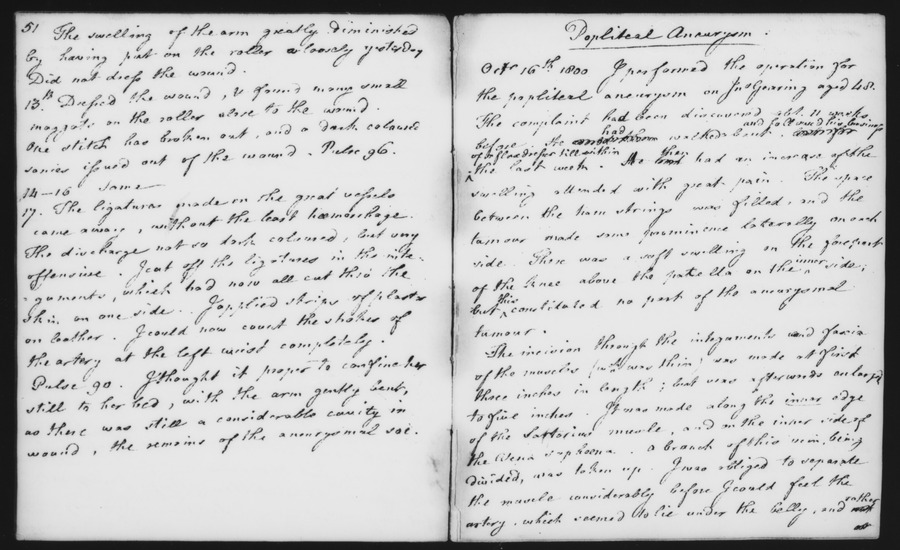 51 The swelling of the arm greatly diminished
by having put on the roller as loosely yesterday
Did not dress the wound.
13th Dressed the wound, & found many small
maggots on the roller close to the wound.
One stitch has broken out, and a dark coloured
sanies issued out of the wound. Pulse 96.
14–16 Same
17. The ligatures made on the great vessels
came away, without the least hæmorrhage.
The discharge not so dark coloured, but very
offensive. I cut off the ligatures in the inte-
-guments, which had now all cut thro the
skin on one side. I applied strips of plaster
on leather. I could now count the strokes of
the artery at the left wrist completely.
Pulse 90. I thought it proper to confine her
still to her bed, with the arm gently bent,
as there was still a considerable cavity in
wound, the remains of the aneurysmal sac.
Popliteal Aneurysm.
Octr 16th 1800 I performed the operation for
the popliteal aneurysm on Jns Gearing aged 48.
The complaint had been discovered abt 11 weeks
before. He had walked about and follow'd his business
of a flax dresser till within
the last week. He then had an increase of the
swelling attended with great pain. The space
between the ham strings was filled, and the
tumour made some prominence laterally on each
side. There was a soft swelling on the forepart
of the knee above the patella on the inner side;
but this constituted no part of the aneurysmal
tumour.
The incision through the integuments and fascia
of the muscles (wch was thin) was made at first
three inches in length; but was afterwards enlarged
to five inches. It was made along the inner edge
of the Sartorius muscle, and on the inner side of
the Vena saphena. A branch of this vein, being
divided, was taken up. I was obliged to separate
the muscle considerably before I could feel the
artery, which seemed to lie under the belly, and rather